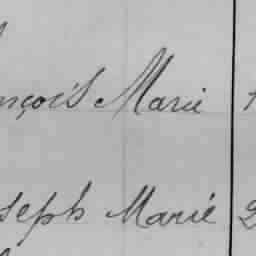 nçois Marie 1
seph Marie 2